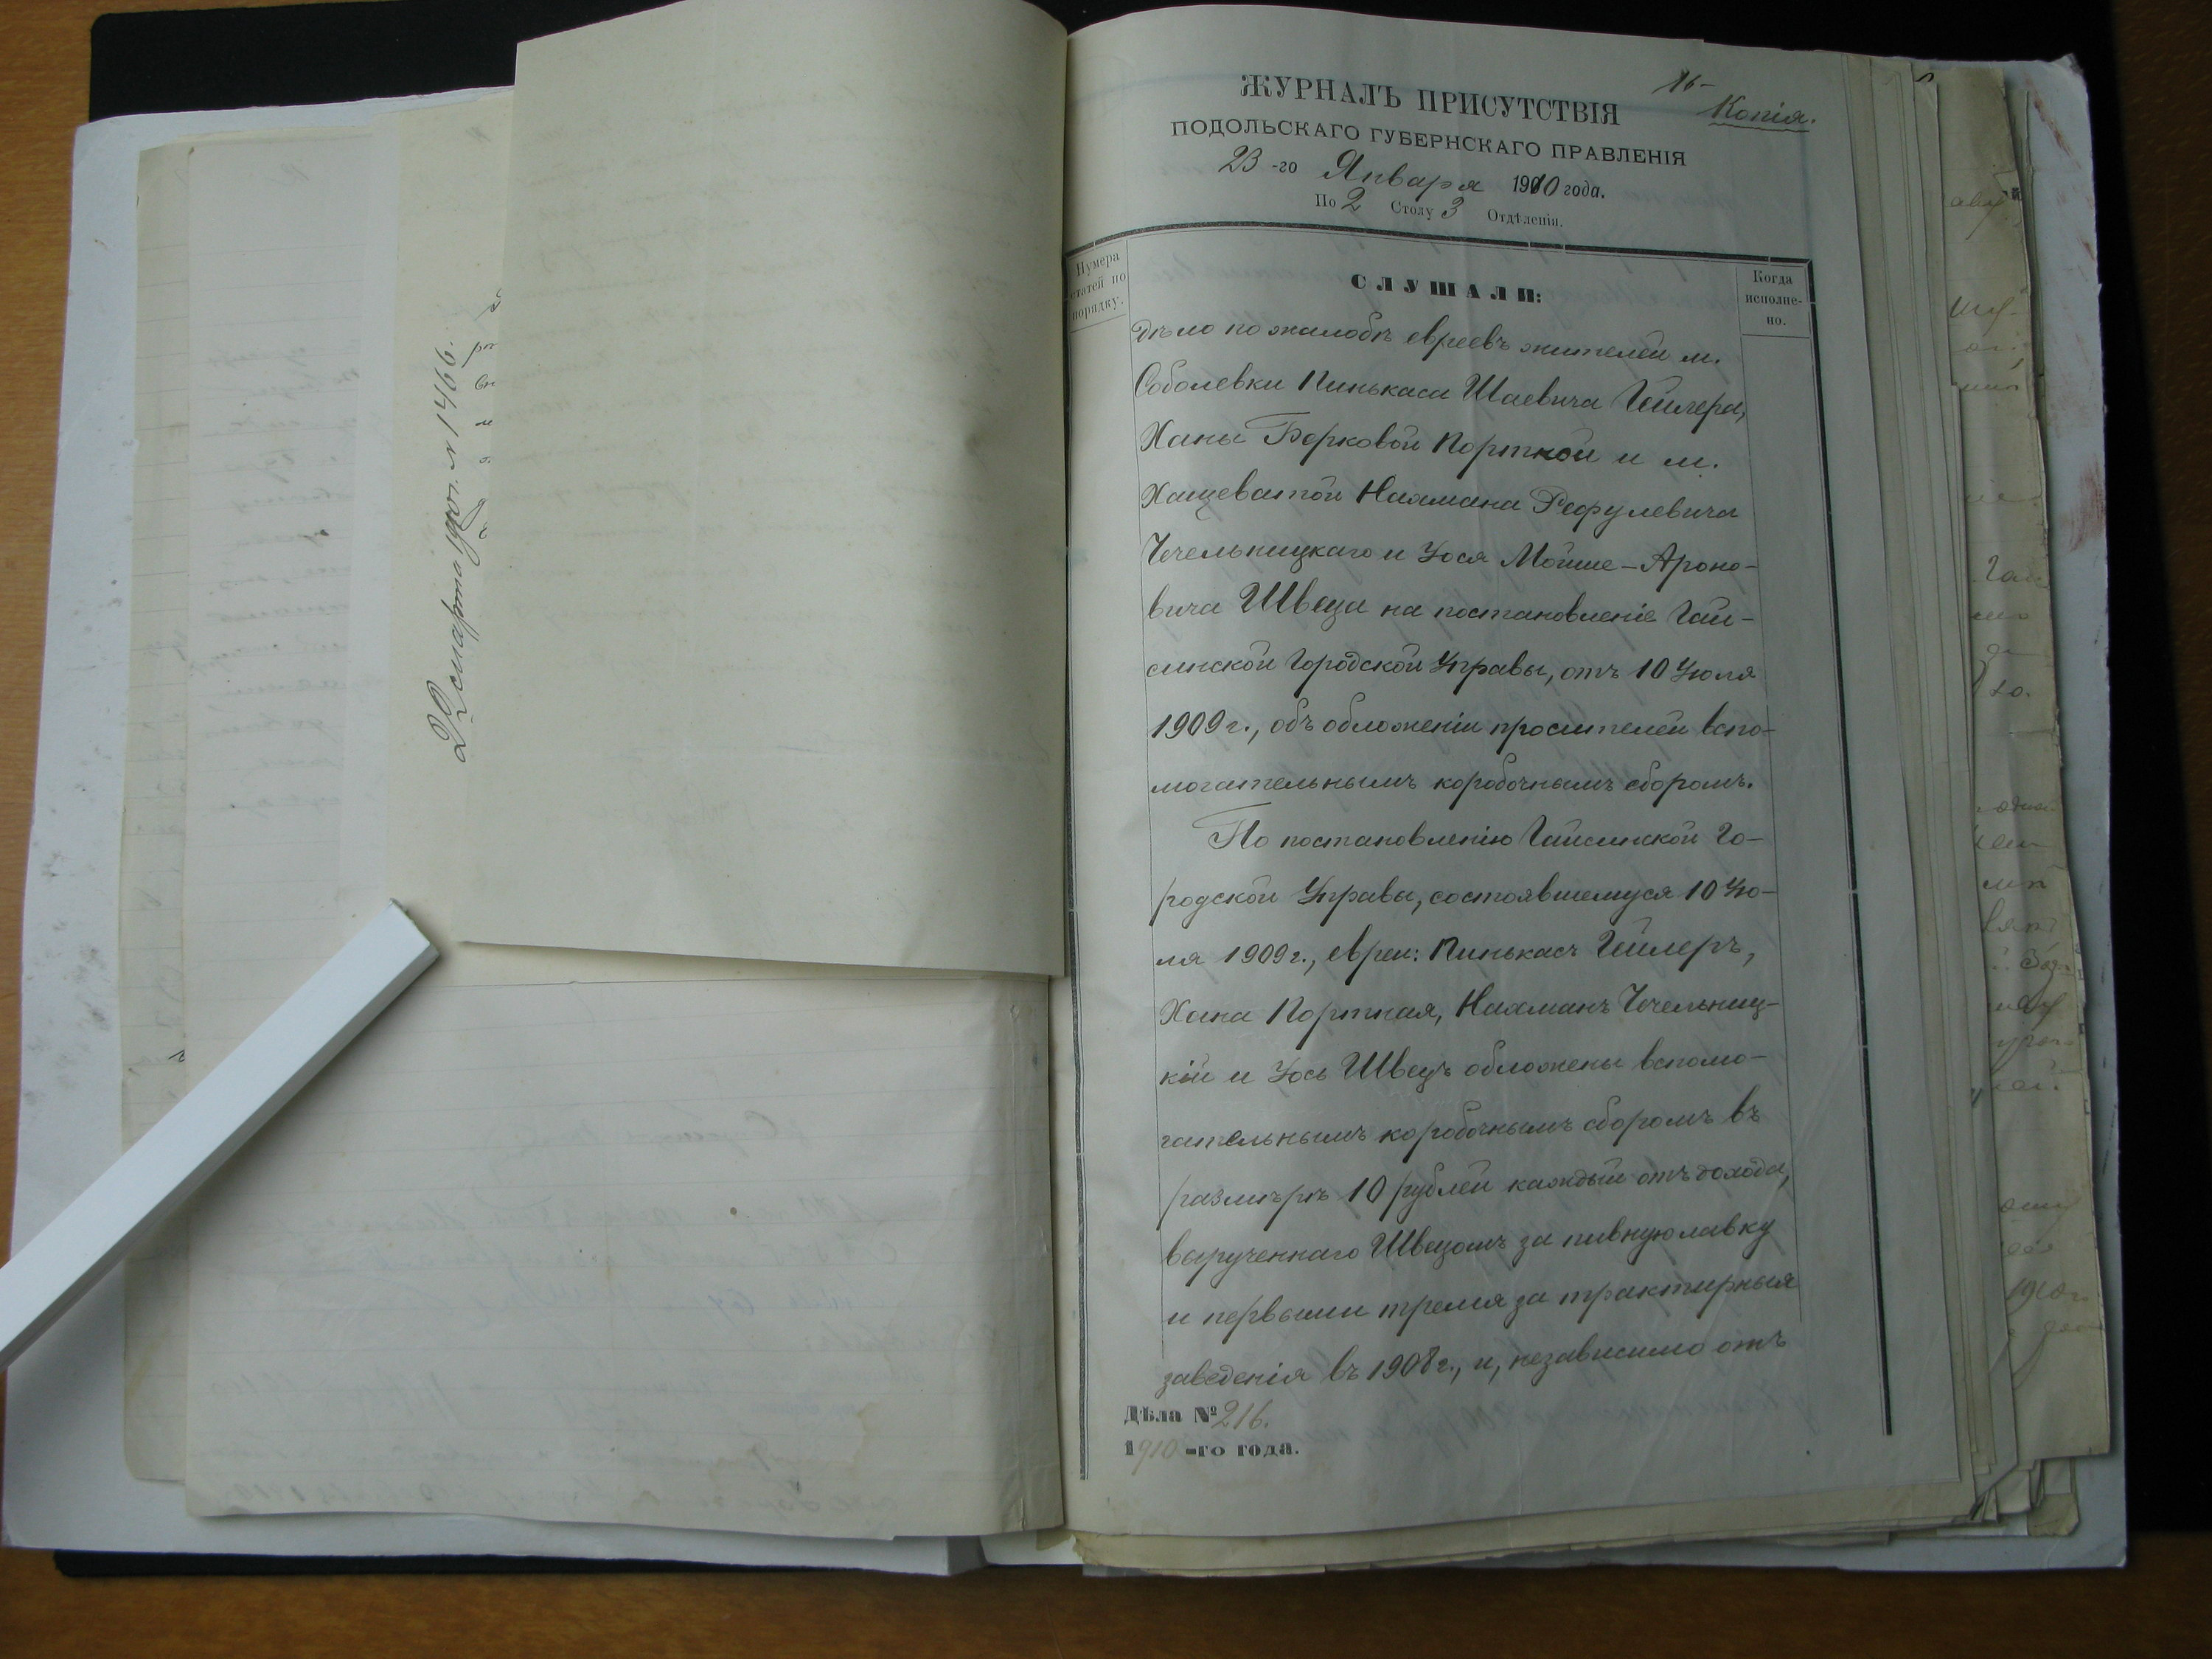 22 марта 1910г. № 1466.
16-
Копія.
ЖУРНАЛЪ ПРИСУТСТВІЯ
ПОДОЛЬСКАГО ГУБЕРНСКАГО ПРАВЛЕНІЯ
23-го Января 1910 года.
По 2 Столу 3 Отдѣленія.
Нумера статей по порядку.
СЛУШАЛИ:
Когда исполнено.
дѣло по жалобѣ евреевъ жителей м.
Соболевки Пинькаса Шаевича Гейлера,
Ханы Берковой Портной и м.
Хащеватой Нахмана Рефулевича
Чечельницкаго и Іося Мойше-Ароно-
вича Швеца на постановленіе Гай-
синской Городской Управы, отъ 10 Іюля
1909 г., объ обложеніи просителей вспо-
могательнымъ коробочнымъ сборомъ.
По постановленію Гайсинской Го-
родской Управы, состоявшемуся 10 Ію-
ля 1909 г., евреи: Пинькасъ Гейлеръ,
Хана Портная, Нахманъ Чечельниц-
кій и Іось Швецъ обложены вспомо-
гательнымъ коробочнымъ сборомъ въ
размѣрѣ 10 рублей каждый отъ дохода,
вырученнаго Швецомъ за пивную лавку
и первыми тремя за трактирныя
заведенія въ 1908 г., и, независимо отъ
Дѣла № 216.
1910-го года.